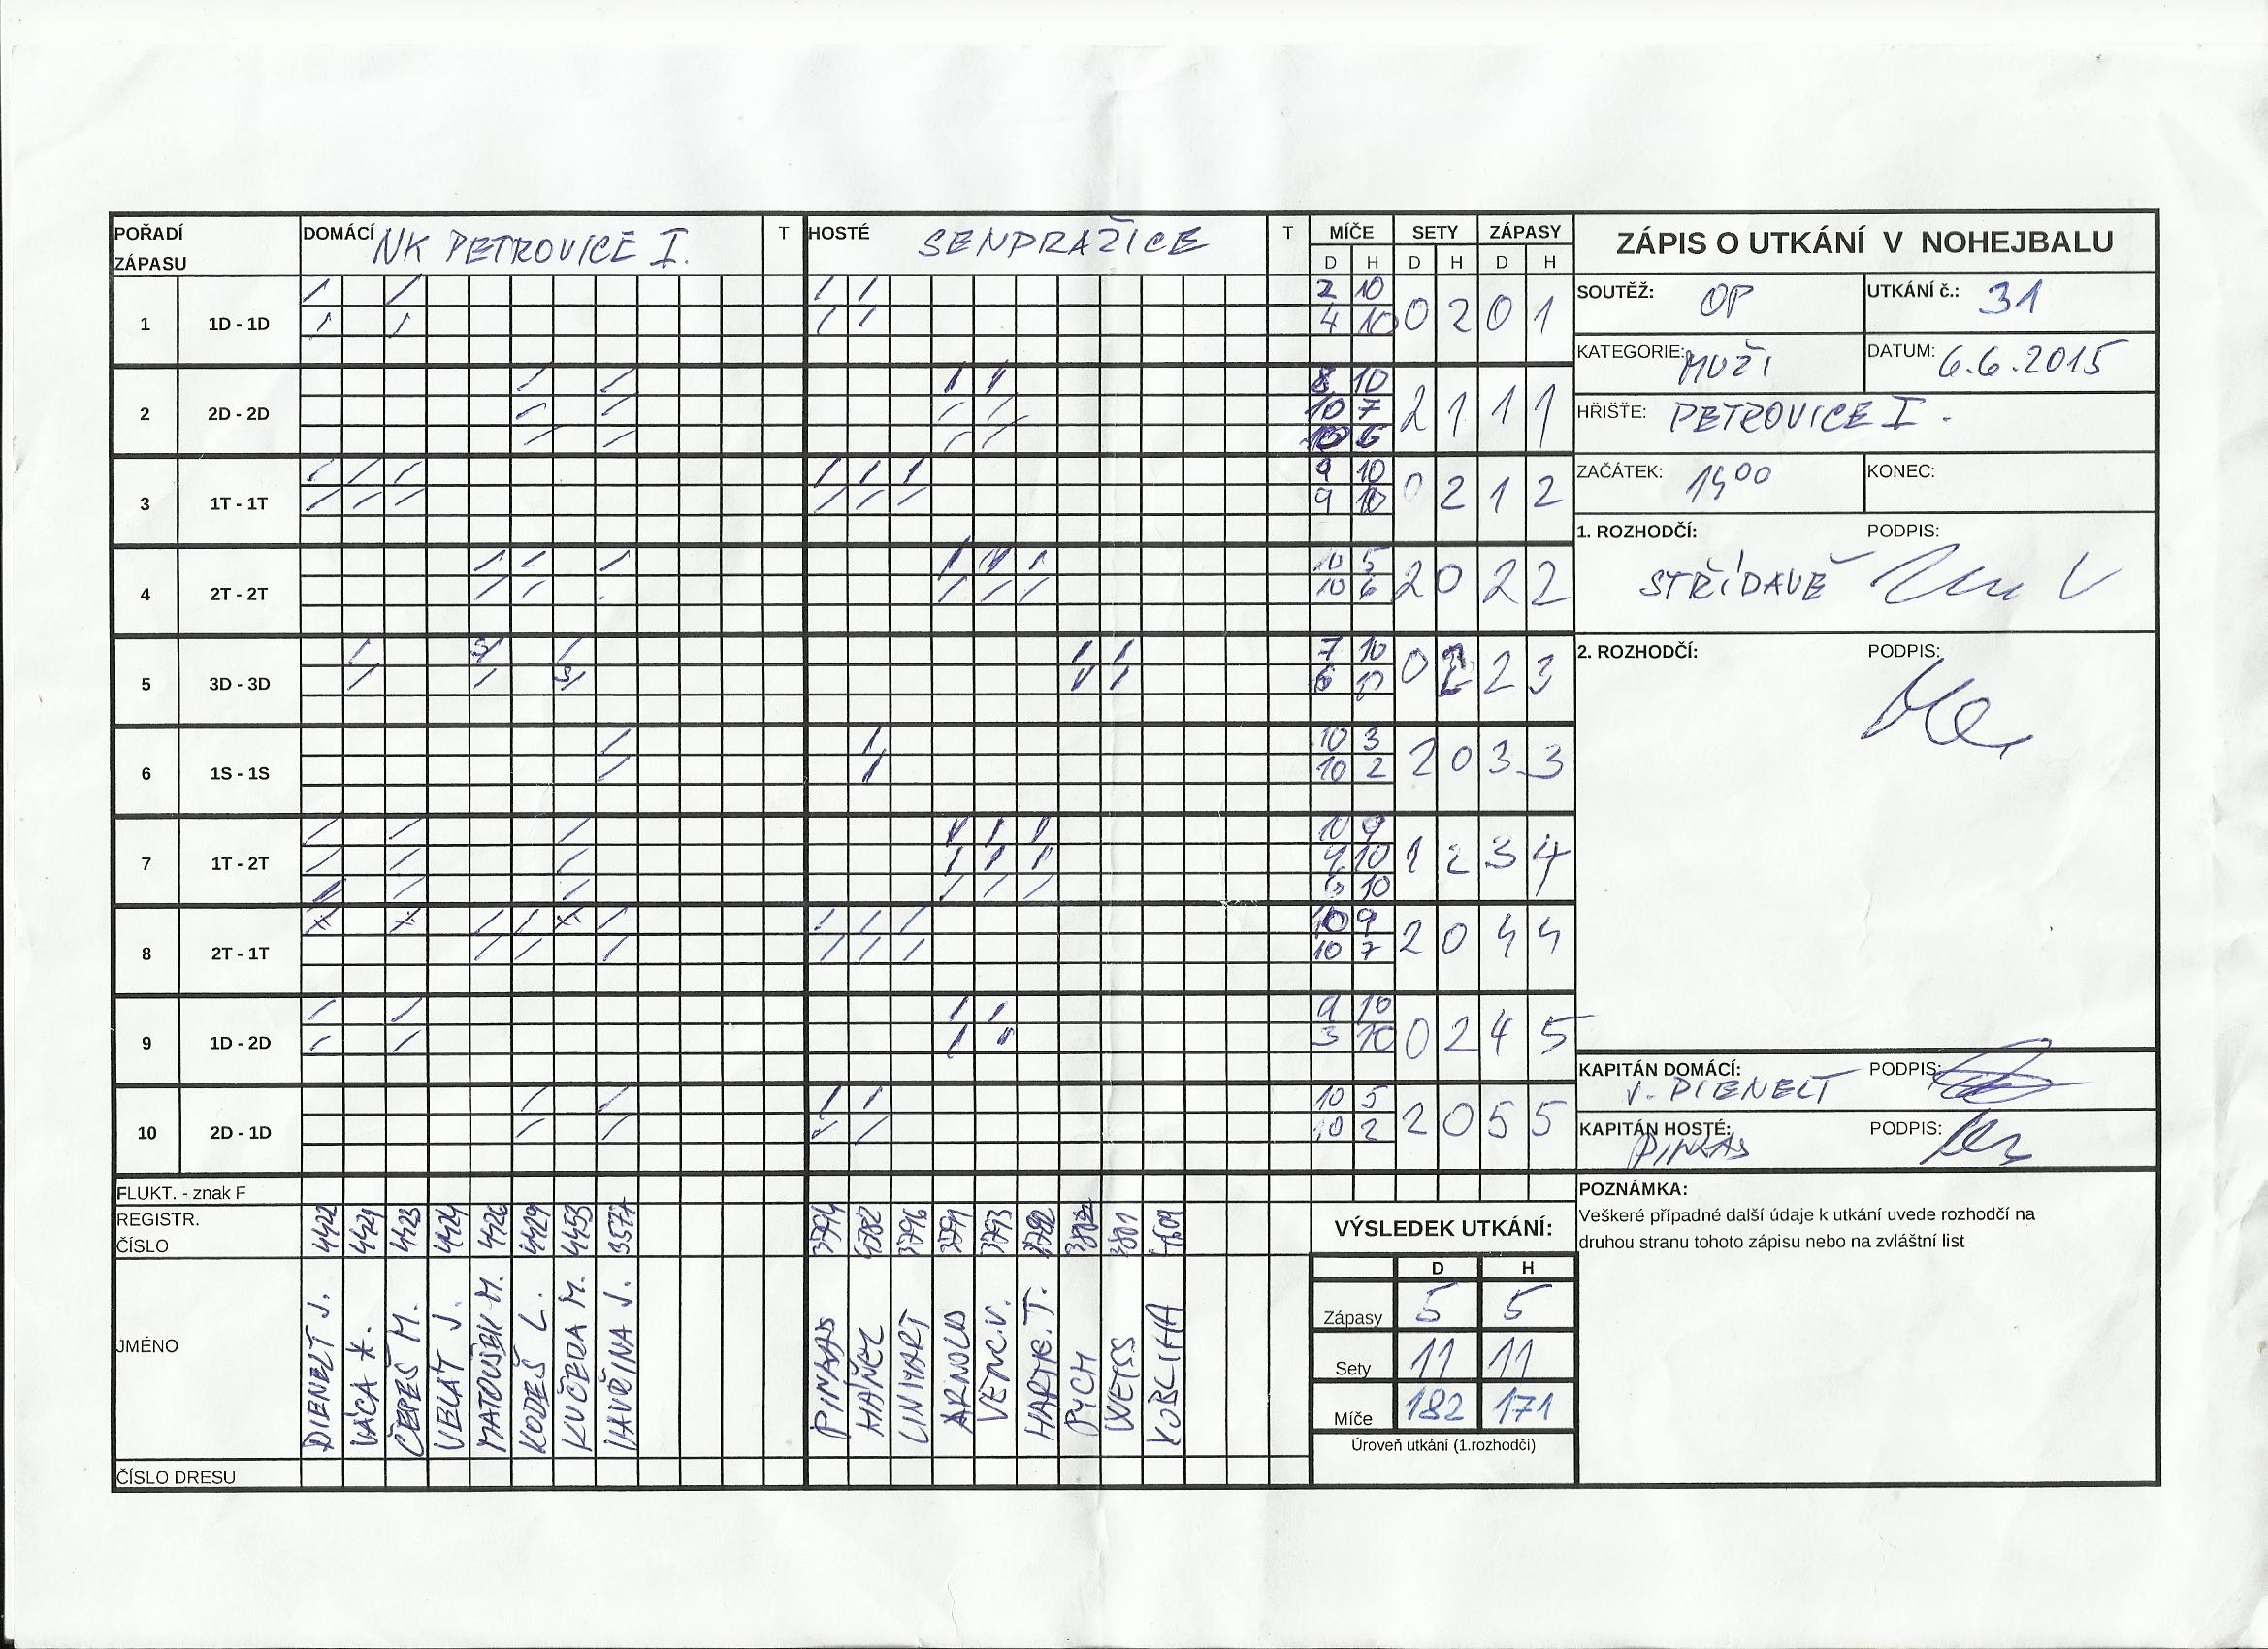 POŘADÍ ZÁPASU DOMÁCÍ NK PETROVICE I. T HOSTÉ SENPRAŽICE T MÍČE SETY ZÁPASY
D H D H D H
1 1D - 1D 2 10 0 2 0 1
4 10
2 2D - 2D 8 10 2 1 1 1
10 7
10 6
3 1T - 1T 9 10 0 2 1 2
9 10
4 2T - 2T 10 5 2 0 2 2
10 6
5 3D - 3D 7 10 0 2 2 3
6 10
6 1S - 1S 10 3 2 0 3 3
10 2
7 1T - 2T 10 9 1 2 3 4
9 10
6 10
8 2T - 1T 10 9 2 0 4 4
10 7
9 1D - 2D 9 10 0 2 4 5
3 10
10 2D - 1D 10 5 2 0 5 5
10 2
FLUKT. - znak F
REGISTR. ČÍSLO 4422 4421 4423 4424 4426 4429 4453 3577 3794 4382 3796 3791 3793 3792 3801
JMÉNO DIENELT J. VÁCA *. ČEPEŠ M. VELÁT J. MATOUŠEK M. KODEŠ L. KUČERA M. HAVŘINA J. PINKAS HÁŇEL LINHART ARNOLD VETR.V. HARTIG.T. PYCH WEISS KOBLIHA
ČÍSLO DRESU
ZÁPIS O UTKÁNÍ V NOHEJBALU
SOUTĚŽ: OP UTKÁNÍ č.: 31
KATEGORIE: MUŽI DATUM: 6.6.2015
HŘIŠTE: PETROVICE I.
ZAČÁTEK: 14 00 KONEC:
1. ROZHODČÍ: PODPIS:
STŘÍDAVĚ
2. ROZHODČÍ: PODPIS:
KAPITÁN DOMÁCÍ: PODPIS:
V. DIENELT
KAPITÁN HOSTÉ: PODPIS:
PINKAS
POZNÁMKA:
Veškeré případné další údaje k utkání uvede rozhodčí na
druhou stranu tohoto zápisu nebo na zvláštní list
VÝSLEDEK UTKÁNÍ:
D H
Zápasy 5 5
Sety 11 11
Míče 182 171
Úroveň utkání (1.rozhodčí)